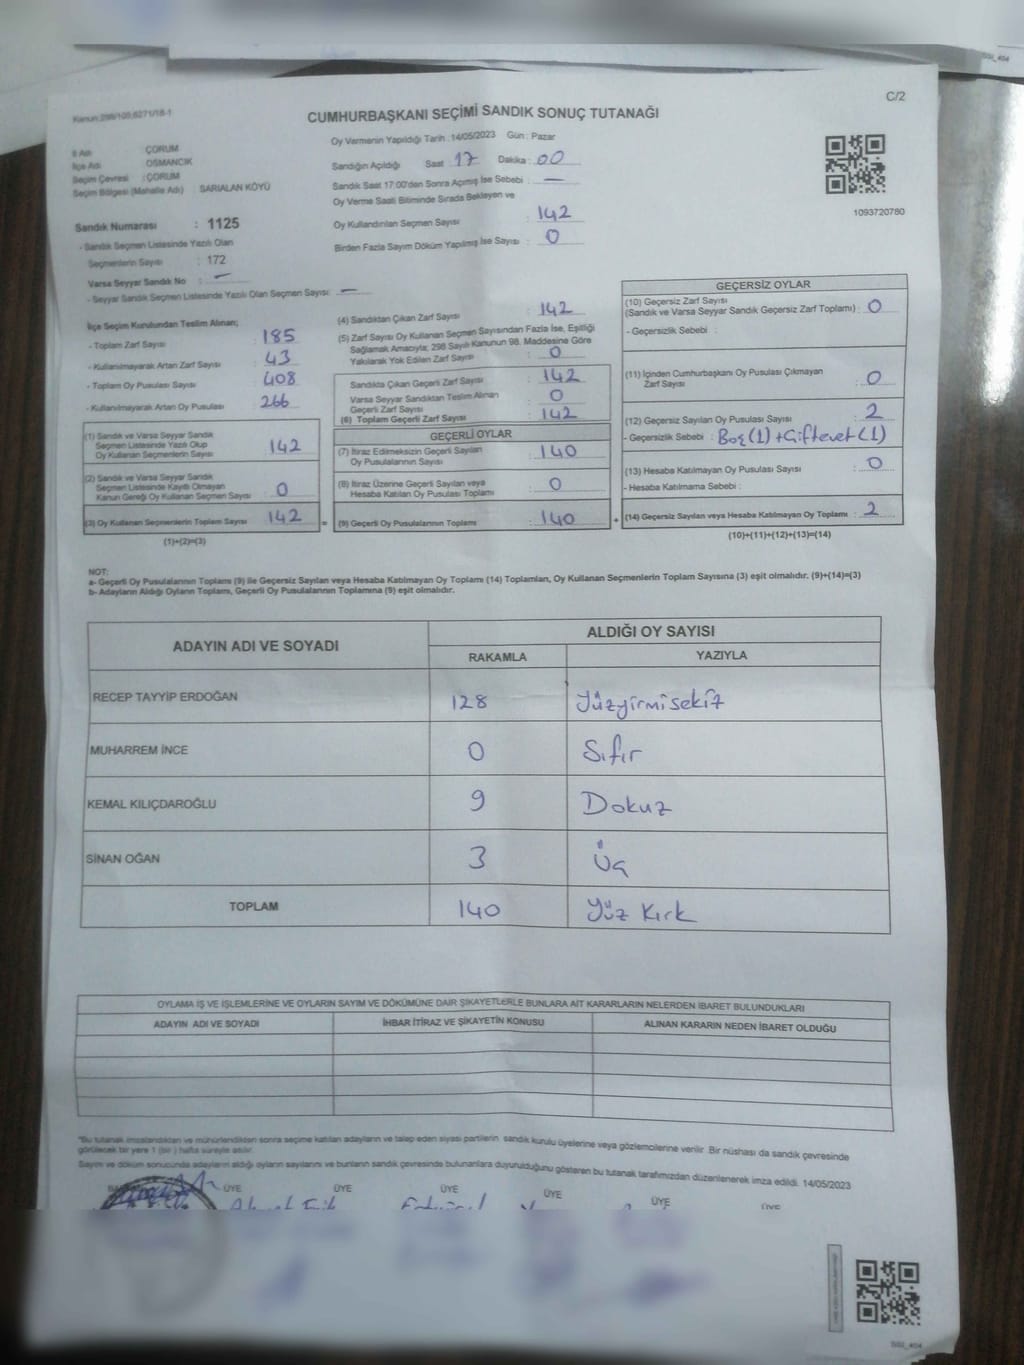 C/2
Kanun:298/105,6271/18-1
CUMHURBAŞKANI SEÇİMİ SANDIK SONUÇ TUTANAĞI
İl Adı : ÇORUM
İlçe Adı : OSMANCIK
Seçim Çevresi : ÇORUM
Seçim Bölgesi (Mahalle Adı) : SARIALAN KÖYÜ
Sandık Numarası : 1125
- Sandık Seçmen Listesinde Yazılı Olan
Seçmenlerin Sayısı : 172
Varsa Seyyar Sandık No : —
- Seyyar Sandık Seçmen Listesinde Yazılı Olan Seçmen Sayısı: —
Oy Vermenin Yapıldığı Tarih : 14/05/2023 Gün : Pazar
Sandığın Açıldığı Saat : 17 Dakika : 00
Sandık Saat 17:00'den Sonra Açılmış İse Sebebi : —
Oy Verme Saati Bitiminde Sırada Bekleyen ve
Oy Kullandırılan Seçmen Sayısı : 142
Birden Fazla Sayım Döküm Yapılmış İse Sayısı : 0
1093720780
İlçe Seçim Kurulundan Teslim Alınan;
- Toplam Zarf Sayısı : 185
- Kullanılmayarak Artan Zarf Sayısı : 43
- Toplam Oy Pusulası Sayısı : 408
- Kullanılmayarak Artan Oy Pusulası : 266
(1) Sandık ve Varsa Seyyar Sandık
Seçmen Listesinde Yazılı Olup
Oy Kullanan Seçmenlerin Sayısı : 142
(2) Sandık ve Varsa Seyyar Sandık
Seçmen Listesinde Kayıtlı Olmayan
Kanun Gereği Oy Kullanan Seçmen Sayısı : 0
(3) Oy Kullanan Seçmenlerin Toplam Sayısı : 142 =
(1)+(2)=(3)
(4) Sandıktan Çıkan Zarf Sayısı : 142
(5) Zarf Sayısı Oy Kullanan Seçmen Sayısından Fazla İse, Eşitliği
Sağlamak Amacıyla; 298 Sayılı Kanunun 98. Maddesine Göre
Yakılarak Yok Edilen Zarf Sayısı : 0
Sandıkta Çıkan Geçerli Zarf Sayısı : 142
Varsa Seyyar Sandıktan Teslim Alınan
Geçerli Zarf Sayısı : 0
(6) Toplam Geçerli Zarf Sayısı : 142
GEÇERLİ OYLAR
(7) İtiraz Edilmeksizin Geçerli Sayılan
Oy Pusulalarının Sayısı : 140
(8) İtiraz Üzerine Geçerli Sayılan veya
Hesaba Katılan Oy Pusulası Toplamı : 0
(9) Geçerli Oy Pusulalarının Toplamı : 140 +
GEÇERSİZ OYLAR
(10) Geçersiz Zarf Sayısı
(Sandık ve Varsa Seyyar Sandık Geçersiz Zarf Toplamı) : 0
- Geçersizlik Sebebi :
(11) İçinden Cumhurbaşkanı Oy Pusulası Çıkmayan
Zarf Sayısı : 0
(12) Geçersiz Sayılan Oy Pusulası Sayısı : 2
- Geçersizlik Sebebi : Boş(1)+Çiftevet(1)
(13) Hesaba Katılmayan Oy Pusulası Sayısı : 0
- Hesaba Katılmama Sebebi :
(14) Geçersiz Sayılan veya Hesaba Katılmayan Oy Toplamı : 2
(10)+(11)+(12)+(13)=(14)
NOT:
a- Geçerli Oy Pusulalarının Toplamı (9) ile Geçersiz Sayılan veya Hesaba Katılmayan Oy Toplamı (14) Toplamları, Oy Kullanan Seçmenlerin Toplam Sayısına (3) eşit olmalıdır. (9)+(14)=(3)
b- Adayların Aldığı Oyların Toplamı, Geçerli Oy Pusulalarının Toplamına (9) eşit olmalıdır.
ADAYIN ADI VE SOYADI ALDIĞI OY SAYISI
RAKAMLA YAZIYLA
RECEP TAYYİP ERDOĞAN 128 Yüzyirmisekiz
MUHARREM İNCE 0 Sıfır
KEMAL KILIÇDAROĞLU 9 Dokuz
SİNAN OĞAN 3 Üç
TOPLAM 140 Yüz Kırk
OYLAMA İŞ VE İŞLEMLERİNE VE OYLARIN SAYIM VE DÖKÜMÜNE DAİR ŞİKAYETLERLE BUNLARA AİT KARARLARIN NELERDEN İBARET BULUNDUKLARI
ADAYIN ADI VE SOYADI İHBAR İTİRAZ VE ŞİKAYETİN KONUSU ALINAN KARARIN NEDEN İBARET OLDUĞU
"Bu tutanak imzalandıktan ve mühürlendikten sonra seçime katılan adayların ve talep eden siyasi partilerin sandık kurulu üyelerine veya gözlemcilerine verilir. Bir nüshası da sandık çevresinde
görülecek bir yere 1 (bir) hafta süreyle asılır.
Sayım ve döküm sonucunda adayların aldığı oyların sayılarını ve bunların sandık çevresinde bulunanlara duyurulduğunu gösteren bu tutanak tarafımızdan düzenlenerek imza edildi. 14/05/2023
ÜYE ÜYE ÜYE ÜYE ÜYE ÜYE